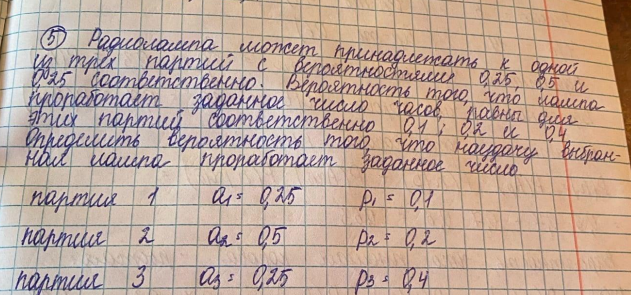 ⑤ Радиолампа может принадлежать к одной
из трех партий с вероятностями 0,25, 0,5 и
0,25 соответственно. Вероятность того, что лампа
проработает заданное число часов, равны для
этих партий соответственно 0,1; 0,2 и 0,4
Определить вероятность того, что наудачу выбран-
ная лампа проработает заданное число
партия 1 a₁ = 0,25 p₁ = 0,1
партия 2 a₂ = 0,5 p₂ = 0,2
партия 3 a₃ = 0,25 p₃ = 0,4